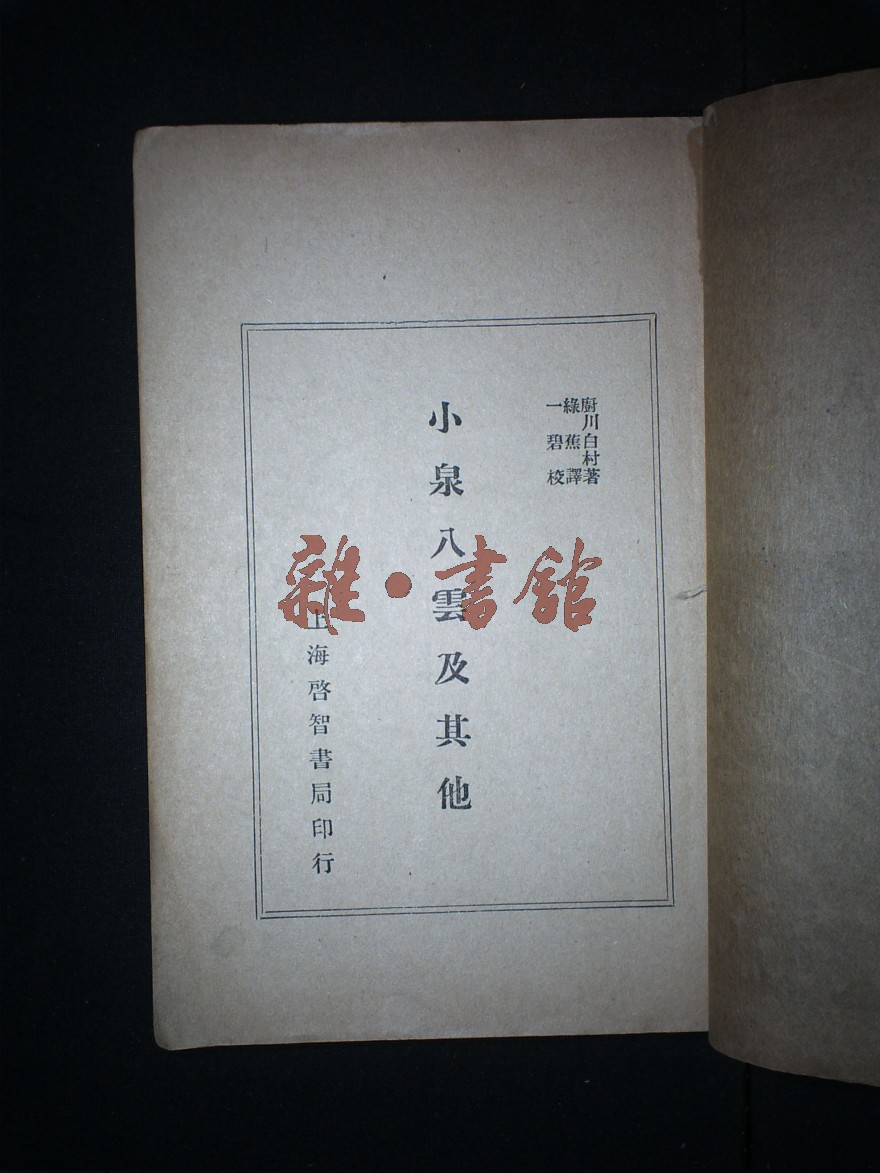 廚川白村著
綠蕉譯
一碧校
小泉八雲及其他
上海啓智書局印行
雜·書館